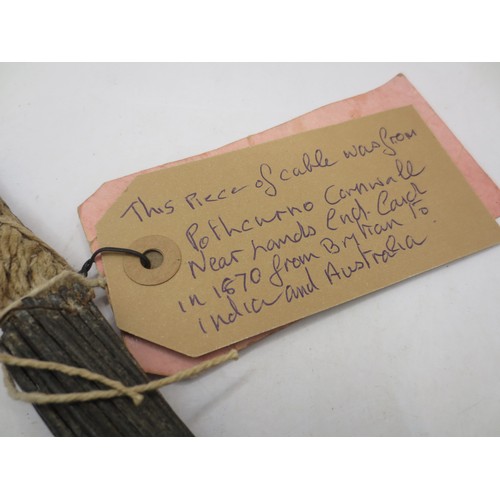 This Piece of cable was from
Pothcurno Cornwall
Near Lands End. Laid
in 1870 from Britian To
India and Australia